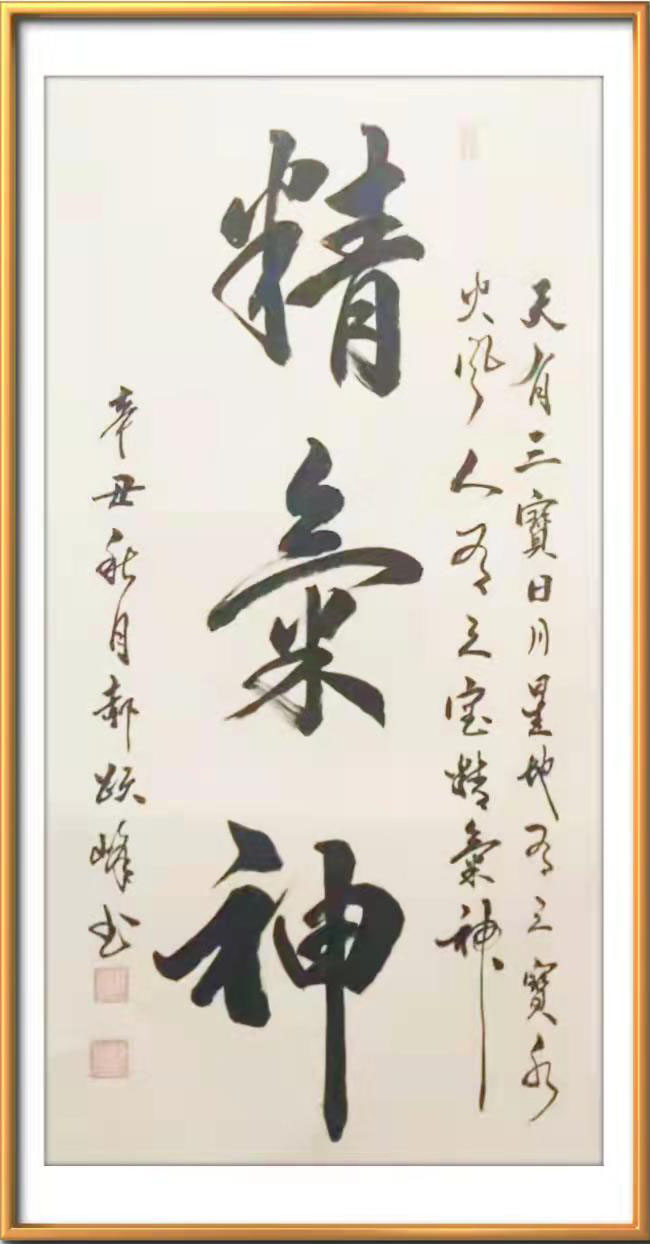 天有三寶日月星地有三寶水
火風人有三宝精氣神
精氣神
辛丑秋月郝峰书